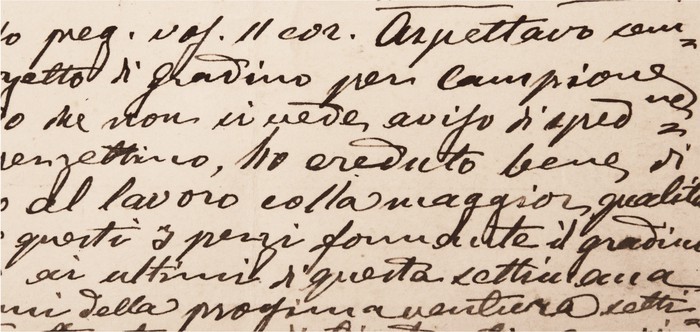 preg. vos. 11 cor. Aspettavo sem=
zzetto di gradino per campione
o che non si vede avifo di sped=
pezzettino, ho creduto bene di
al lavoro colla maggior qualità
questi 3 pezzi formante il gradino
ai ultimi di questa settimana
della profima ventura setti